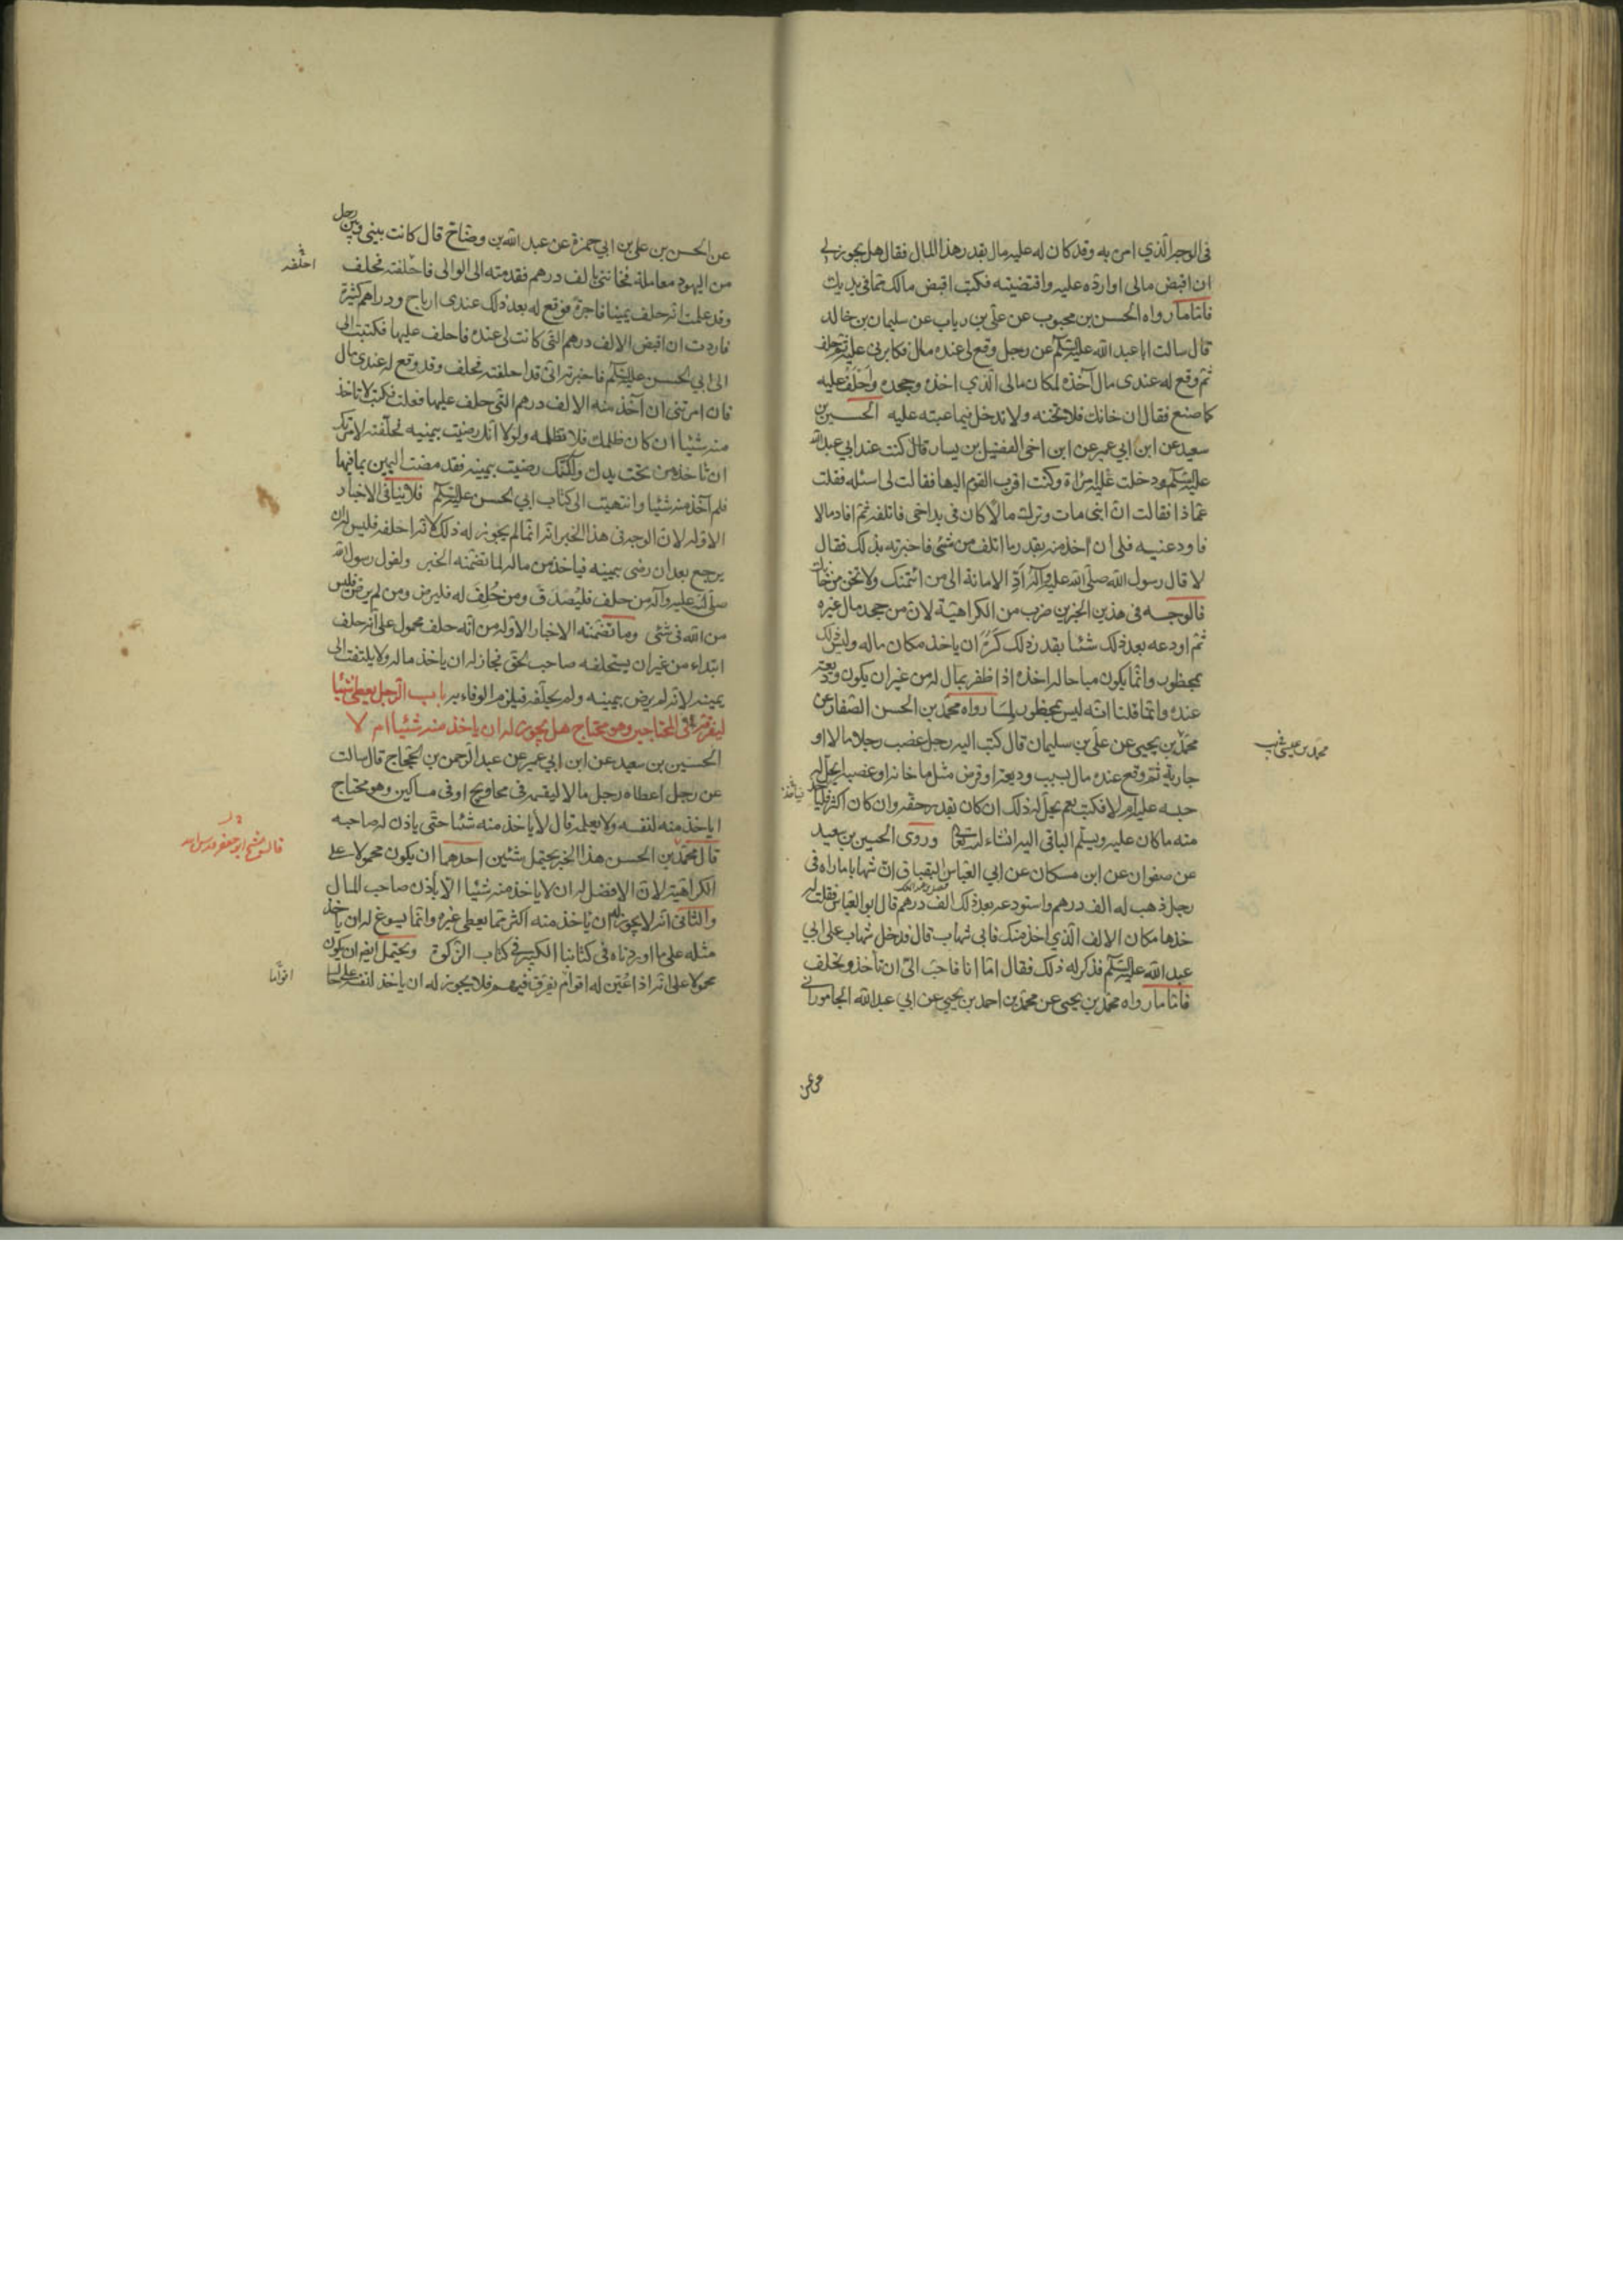 فى الوجه الذي امر به وقد كان له عليه مال بقدر هذا المال فقال هل يجوز لي
ان اقبض مالى او ارده عليه واقتضيته فكتب اقبض مالك مما فى يديك
فاما ما رواه الحسن بن محبوب عن على بن رياب عن سليمان بن خالد
قال سالت ابا عبد الله عليه السلام عن رجل وقع لى عنده مال فكابرنى عليه ثم حلف
ثم وقع له عندى مال آخذه لمكان مالى الذي اخذه وجحده واحلف عليه
كما صنع فقال ان خانك فلا تخنه ولا تدخل فيما عبته عليه الحسين بن
سعيد عن ابن ابي عمير عن ابن اخى الفضيل بن يسار قال كنت عند ابي عبد الله
عليه السلام ودخلت عليه امراة وكنت اقرب القوم اليها فقالت لى اسئله فقلت
عما ذا فقالت ان ابنى مات وترك مالا كان فى يد اخى فاتلفه ثم افاد مالا
فاودعنيه فلى ان اخذ منه بقدر ما اتلف من شئ فاخبرته بذلك فقال
لا قال رسول الله صلى الله عليه وآله اد الامانة الى من ائتمنك ولا تخن من خانك
فالوجه فى هذين الخبرين ضرب من الكراهية لان من جحد مال غيره
ثم اودعه بعد ذلك شئا بقدر ذلك كره ان ياخذ مكان ماله وليس ذلك
بمحظور وانما يكون مباحا له اخذه اذا ظفر بمال له من غير ان يكون وديعة
عنده وانما قلنا انه ليس بمحظور لما رواه محمد بن الحسن الصفار عن
محمد بن يحيى عن على بن سليمان قال كتب اليه رجل غصب رجلا مالا او
جارية ثم وقع عنده مال بسبب وديعة او قرض مثل ما خانه او غصبه ايحل له
حبسه عليه ام لا فكتب نعم يحل له ذلك ان كان بقدر حقه وان كان اكثر فليأخذ
منه ما كان عليه ويسلم الباقى اليه انشاء الله وروى الحسين بن سعيد
عن صفوان عن ابن مسكان عن ابي العباس البقباق ان شهابا ماراه فى
رجل ذهب له الف درهم واستودعه بعد ذلك الف درهم قال ابو العباس فقلت له
خذها مكان الالف الذي اخذ منك فابى شهاب قال فدخل شهاب على ابي
عبد الله عليه السلام فذكر له ذلك فقال اما انا فاحب الى ان تأخذ وتحلف
فاما ما رواه محمد بن يحيى عن محمد بن احمد بن يحيى عن ابي عبد الله الجامورانى
محمد بن عيسى
عن الحسن بن على بن ابي حمزة عن عبد الله بن وضاح قال كانت بينى وبين رجل
من اليهود معاملة فخاننى بالف درهم فقدمته الى الوالى فاحلفته فحلف
احلفه
وقد علمت انه حلف يمينا فاجرة فوقع له بعد ذلك عندى ارباح ودراهم كثيرة
فاردت ان اقبض الالف درهم التى كانت لى عنده فاحلف عليها فكتبت الى
الى ابي الحسن عليه السلام فاخبرته انى قد احلفته فحلف وقد وقع له عندى مال
فان امرتنى ان آخذ منه الالف درهم التى حلف عليها فعلت فكتب لا تاخذ
منه شيئا ان كان ظلمك فلا تظلمه ولولا انك رضيت بيمينه فحلفته لامرتك
ان تاخذه من تحت يدك ولكنك رضيت بيمينه فقد مضت اليمين بما فيها
فلم آخذ منه شيئا وانتهيت الى كتاب ابي الحسن عليه السلام فلا ينافى الاخبار
الاوله لان الوجه فى هذا الخبر انه انما لم يجوز له ذلك لانه احلفه فليس له ان
يرجع بعد ان رضى بيمينه فياخذ من ماله لما تضمنه الخبر ولقول رسول الله
صلى الله عليه وآله من حلف فليصدق ومن حلف له فليرض ومن لم يرض فليس
من الله فى شئى وما تضمنه الاخبار الاوله من انه حلف محمول على انه حلف
ابتداء من غير ان يستحلفه صاحب الحق فجاز له ان ياخذ ماله ولا يلتفت الى
يمينه لانه لم يرض بيمينه ولم يحلفه فيلزم الوفاء به باب الرجل يعطى شيئا
ليفرقه فى المحتاجين وهو محتاج هل يجوز له ان ياخذ منه شيئا ام لا
الحسين بن سعيد عن ابن ابي عمير عن عبد الرحمن بن الحجاج قال سالت
عن رجل اعطاه رجل مالا ليقسمه فى محاويج او فى مساكين وهو محتاج
اياخذ منه لنفسه ولا يعلمه قال لا ياخذ منه شئا حتى ياذن له صاحبه
قال محمد بن الحسن هذا الخبر يحتمل شئين احدهما ان يكون محمولا على
الكراهية لان الافضل له ان لا ياخذ منه شيئا الا باذن صاحب المال
والثانى انه لا يجوز له ان ياخذ منه اكثر مما يعطى غيره وانما يسوغ له ان ياخذ
مثله على ما اوردناه فى كتابنا الكبير فى كتاب الزكوة ويحتمل ايضا ان يكون
محمولا على انه اذا عين له اقوام يفرق فيهم فلا يجوز له ان ياخذ لنفسه
اقواما